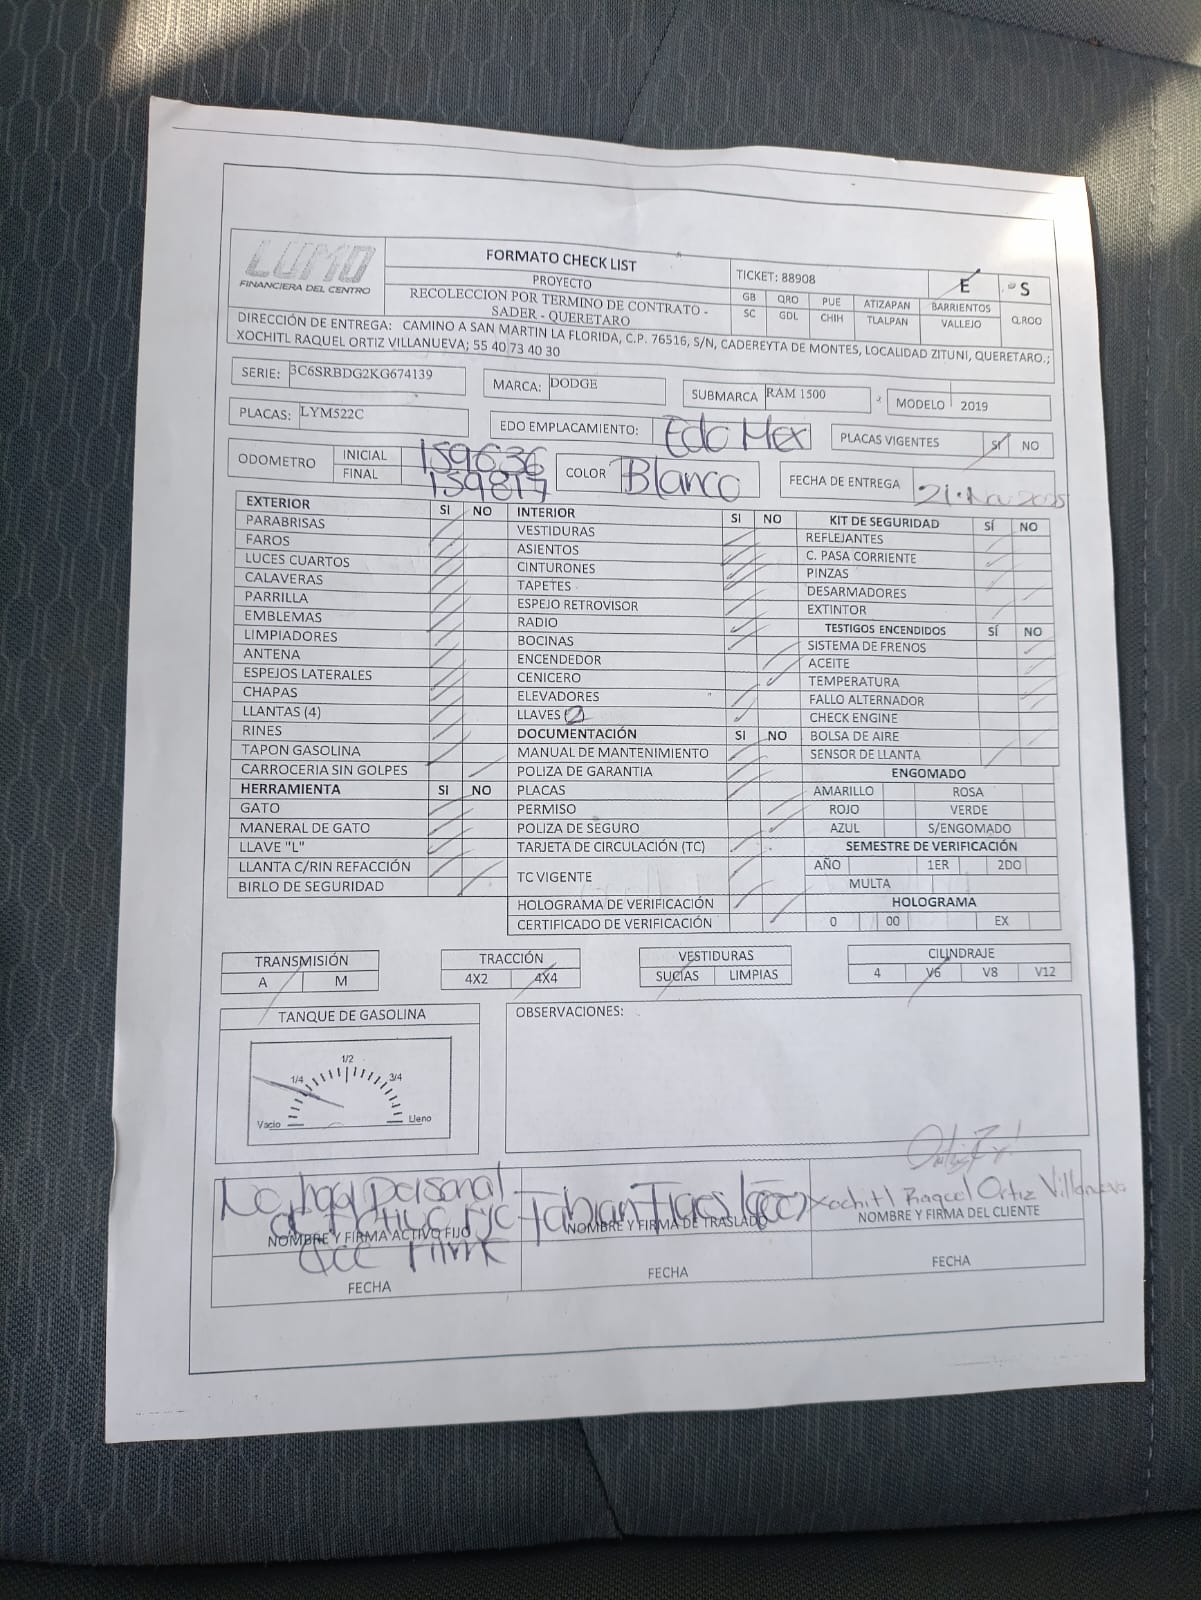 LUMO
FINANCIERA DEL CENTRO
FORMATO CHECK LIST
PROYECTO
RECOLECCION POR TERMINO DE CONTRATO -
SADER - QUERETARO
TICKET: 88908 E S
GB QRO PUE ATIZAPAN BARRIENTOS Q.ROO
SC GDL CHIH TLALPAN VALLEJO
DIRECCIÓN DE ENTREGA: CAMINO A SAN MARTIN LA FLORIDA, C.P. 76516, S/N, CADEREYTA DE MONTES, LOCALIDAD ZITUNI, QUERETARO.;
XOCHITL RAQUEL ORTIZ VILLANUEVA; 55 40 73 40 30
SERIE: 3C6SRBDG2KG674139 MARCA: DODGE SUBMARCA RAM 1500 MODELO 2019
PLACAS: LYM522C EDO EMPLACAMIENTO: Edo Mex PLACAS VIGENTES SI NO
ODOMETRO INICIAL 159636
FINAL 159817
COLOR Blanco FECHA DE ENTREGA 21.Nov 2025
EXTERIOR SI NO
PARABRISAS
FAROS
LUCES CUARTOS
CALAVERAS
PARRILLA
EMBLEMAS
LIMPIADORES
ANTENA
ESPEJOS LATERALES
CHAPAS
LLANTAS (4)
RINES
TAPON GASOLINA
CARROCERIA SIN GOLPES
HERRAMIENTA SI NO
GATO
MANERAL DE GATO
LLAVE "L"
LLANTA C/RIN REFACCIÓN
BIRLO DE SEGURIDAD
INTERIOR SI NO
VESTIDURAS
ASIENTOS
CINTURONES
TAPETES
ESPEJO RETROVISOR
RADIO
BOCINAS
ENCENDEDOR
CENICERO
ELEVADORES
LLAVES (2)
DOCUMENTACIÓN SI NO
MANUAL DE MANTENIMIENTO
POLIZA DE GARANTIA
PLACAS
PERMISO
POLIZA DE SEGURO
TARJETA DE CIRCULACIÓN (TC)
TC VIGENTE
HOLOGRAMA DE VERIFICACIÓN
CERTIFICADO DE VERIFICACIÓN
KIT DE SEGURIDAD SÍ NO
REFLEJANTES
C. PASA CORRIENTE
PINZAS
DESARMADORES
EXTINTOR
TESTIGOS ENCENDIDOS SÍ NO
SISTEMA DE FRENOS
ACEITE
TEMPERATURA
FALLO ALTERNADOR
CHECK ENGINE
BOLSA DE AIRE
SENSOR DE LLANTA
ENGOMADO
AMARILLO ROSA
ROJO VERDE
AZUL S/ENGOMADO
SEMESTRE DE VERIFICACIÓN
AÑO 1ER 2DO
MULTA
HOLOGRAMA
0 00 EX
TRANSMISIÓN
A M
TRACCIÓN
4X2 4X4
VESTIDURAS
SUCIAS LIMPIAS
CILINDRAJE
4 V6 V8 V12
TANQUE DE GASOLINA
Vacio 1/4 1/2 3/4 Lleno
OBSERVACIONES:
No hay personal
NOMBRE Y FIRMA ACTIVO FIJO
FECHA
Fabian
NOMBRE Y FIRMA DE TRASLADO
FECHA
Xochitl Raquel Ortiz Villanueva
NOMBRE Y FIRMA DEL CLIENTE
FECHA